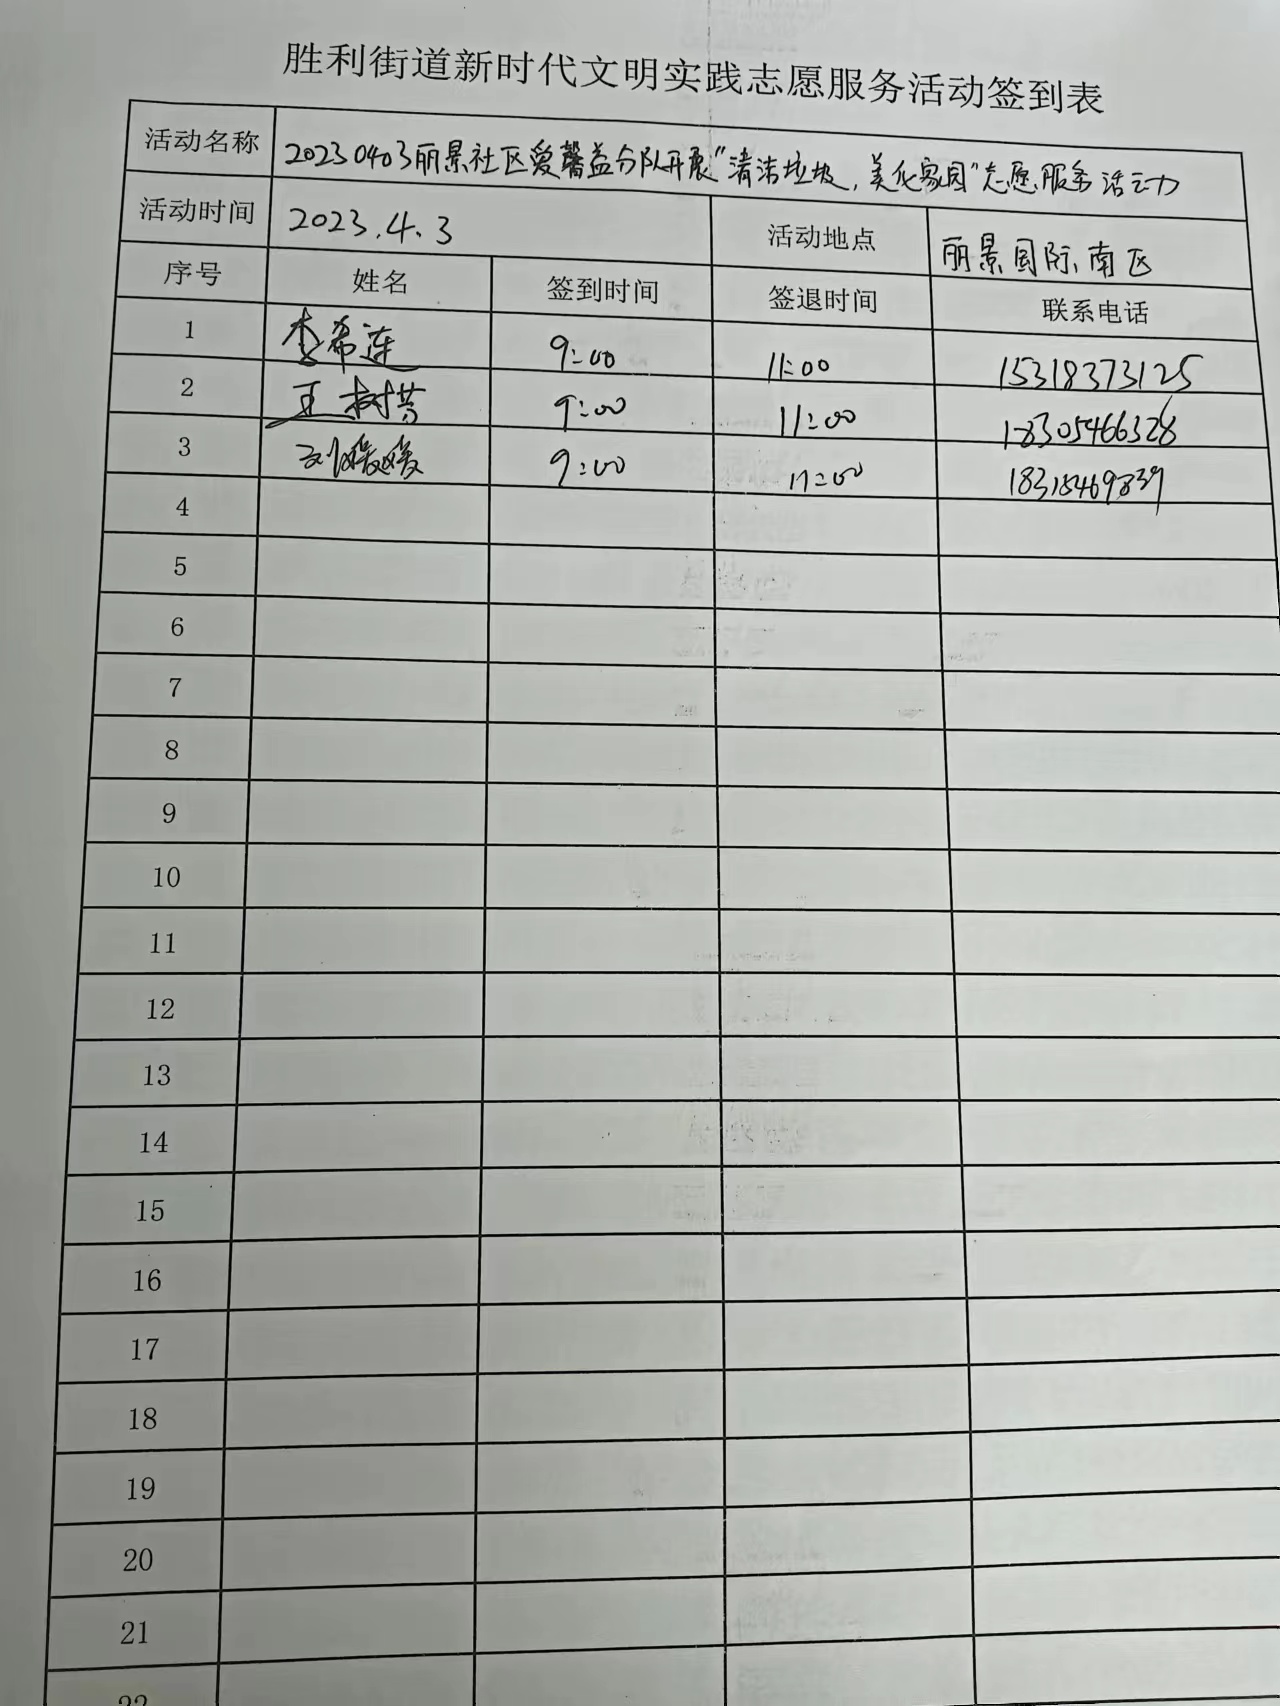 胜利街道新时代文明实践志愿服务活动签到表
活动名称 20230403丽景社区爱馨益分队开展“清洁垃圾，美化家园”志愿服务活动
活动时间 2023.4.3 活动地点 丽景国际南区
序号 姓名 签到时间 签退时间 联系电话
1 李希莲 9:00 11:00 15318373125
2 王树 9:00 11:00 18305466328
3 刘媛媛 9:00 11:00 18315469839
4
5
6
7
8
9
10
11
12
13
14
15
16
17
18
19
20
21
22